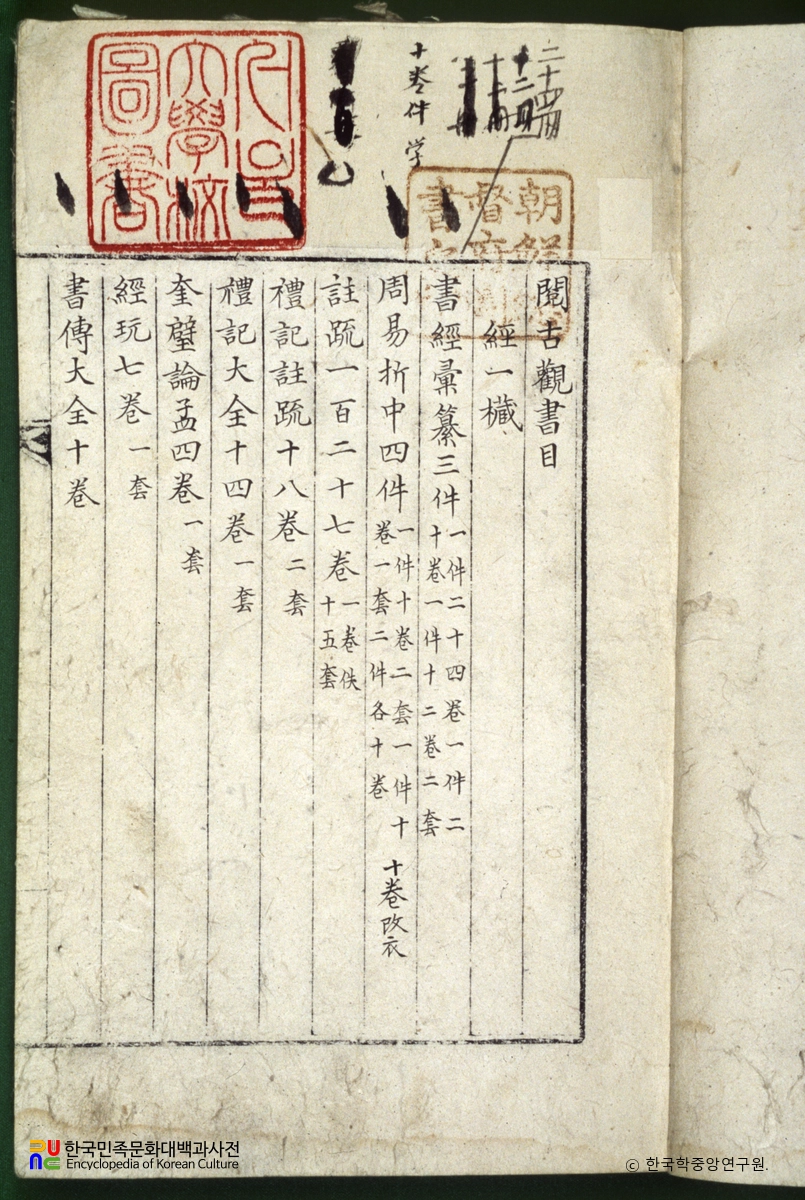 閱古觀書目
經一欌
書經彙纂三件 一件二十四卷一件二十卷一件十二卷二套
周易折中四件 一件十卷二套一件十卷一套二件各十卷 十卷改衣
註䟽一百二十七卷 一卷佚十五套
禮記註䟽十八卷 二套
禮記大全十四卷 一套
奎壁論孟四卷 一套
經玩七卷 一套
書傳大全十卷
二十四冊
十卷件 学
朝鮮
督府
書
서울
大學校
圖書
한국민족문화대백과사전
Encyclopedia of Korean Culture
ⓒ 한국학중앙연구원.